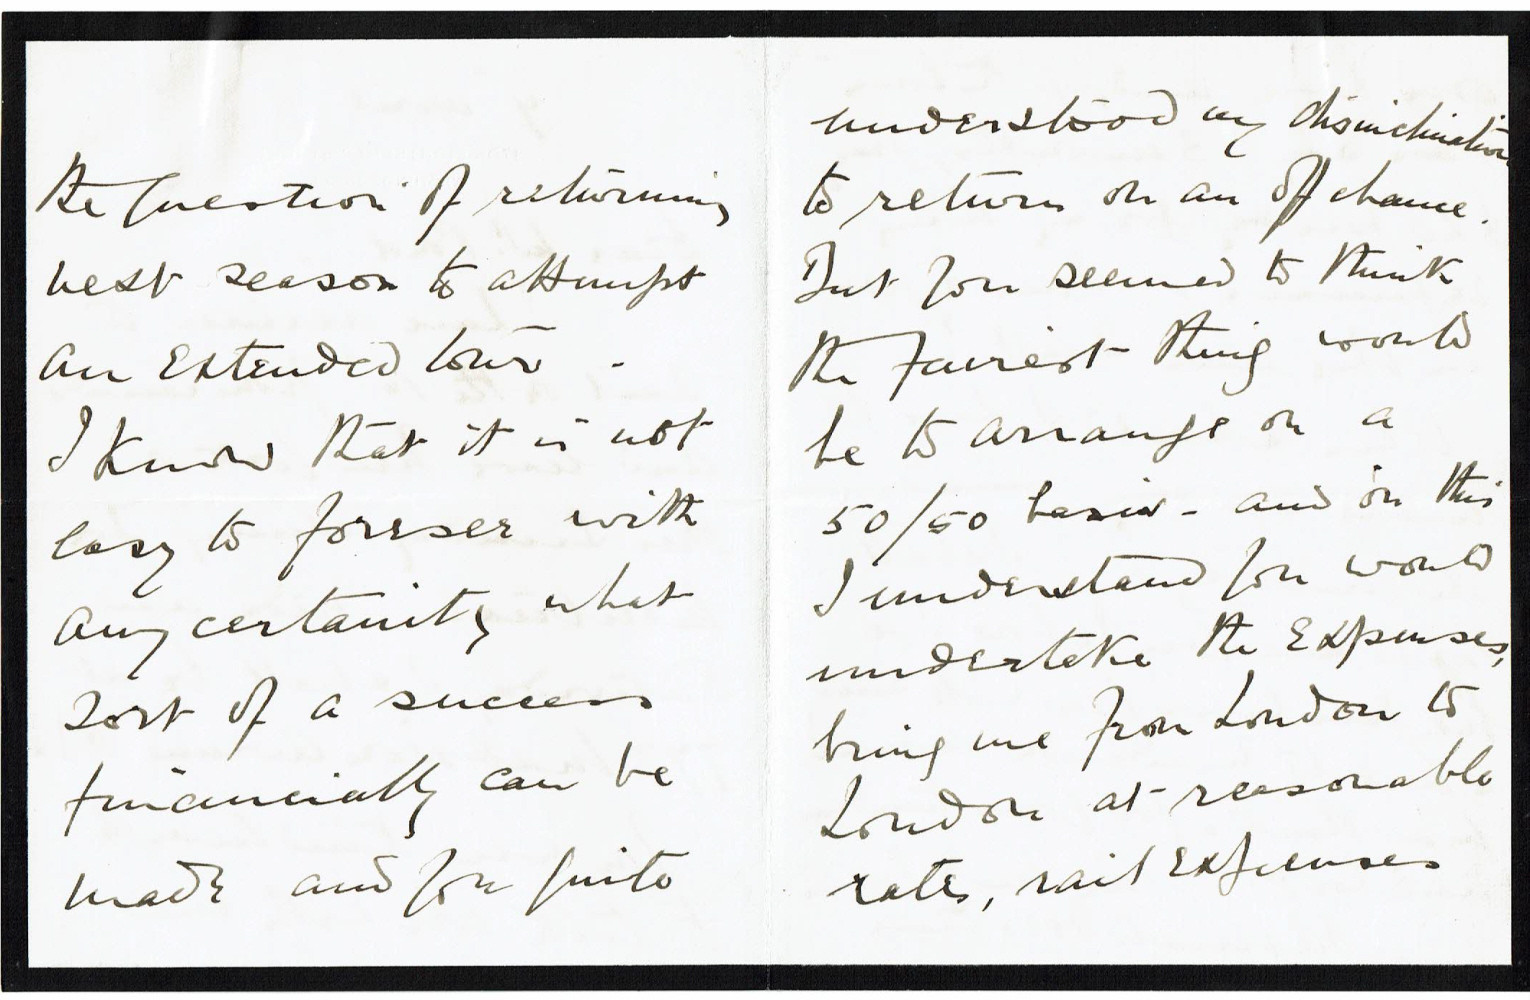 the question of returning
next season to attempt
an extended tour -
I know that it is not
easy to foresee with
any certainity what
sort of a success
financially can be
made and you quite
understood my disinclination
to return on an off chance.
But you seemed to think
the fairest thing would
be to arrange on a
50/50 basis - and on this
I understand you would
undertake the expenses,
bring me from London to
London at reasonable
rates, rail expenses